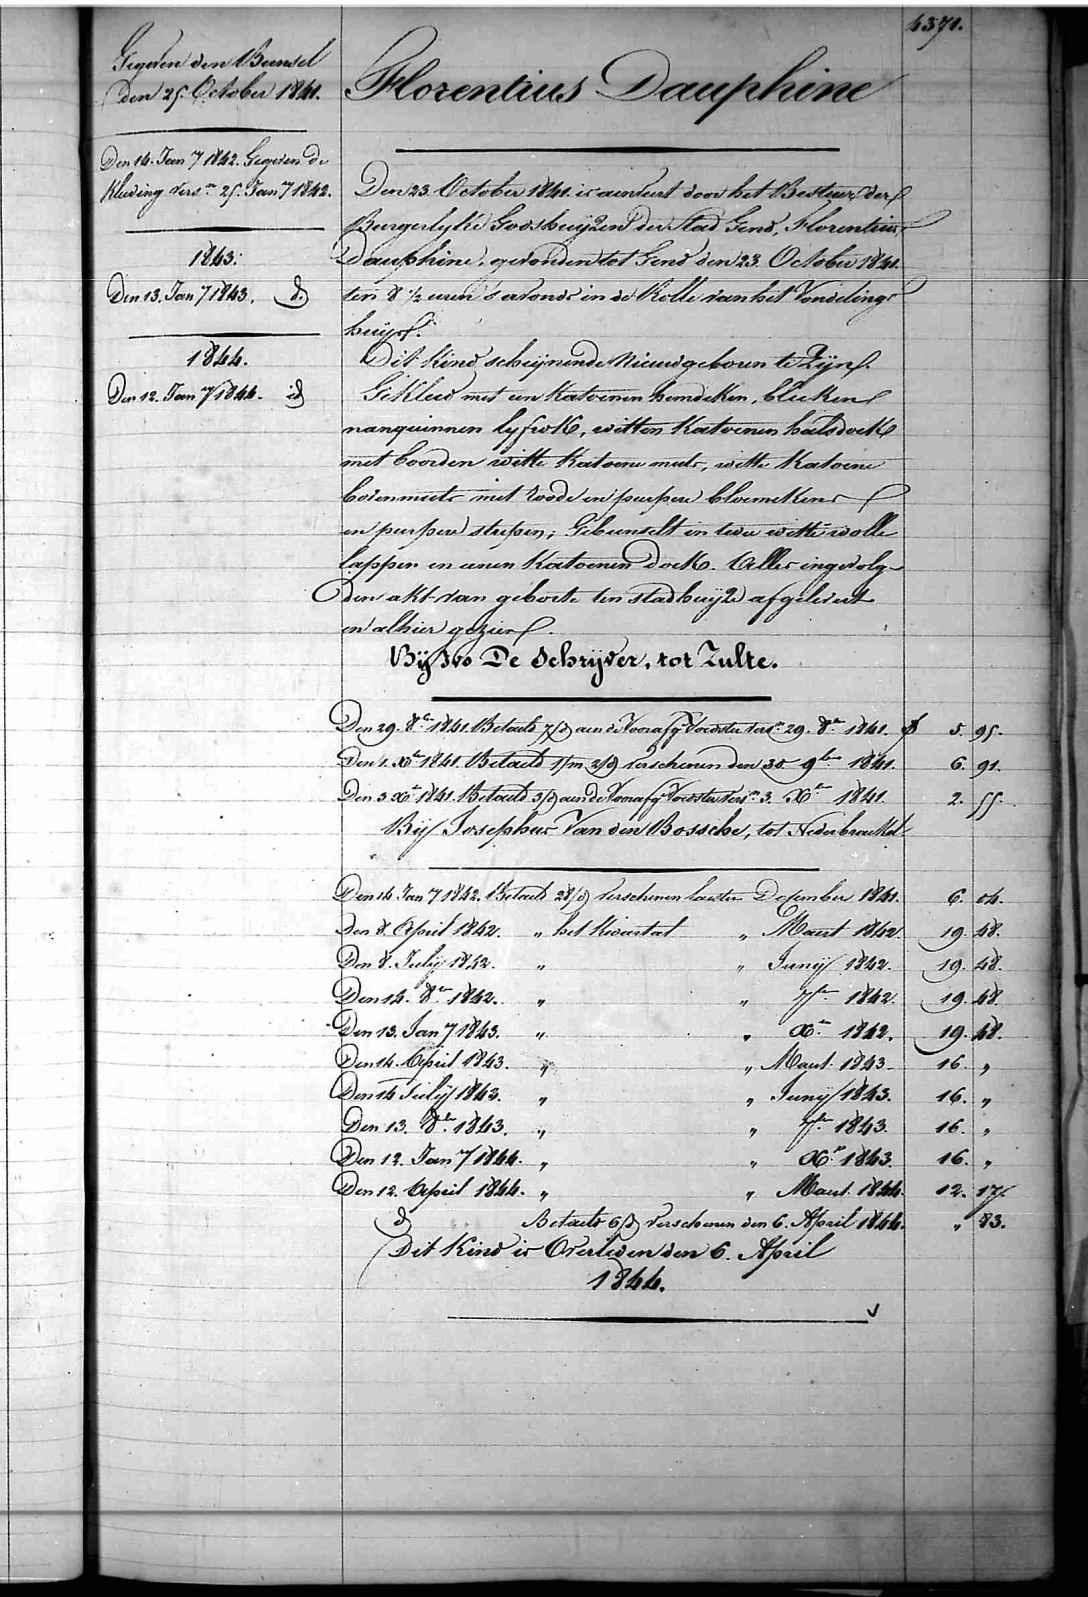 4371.
Gegeven den Bunsel
den 25. October 1841.
Den 14. Jan 7 1842. Gegeven de
Kleeding vers.n 25. Jan 7 1842.
1843.
Den 13. Jan 7 1843. d.
1844.
Den 12. Jan 7 1844. id
Florentius Dauphine
Den 23. October 1841. is aenveert door het Bestuur der
Burgerlyke Godshuyzen der Stad Gend, Florentius
Dauphine, gevonden tot Gend den 23. October 1841.
ten 8 1/2 uren s'avonds in de Rolle van het Vondelings
huys.
Dit Kind schynende Nieuwgeboren te Zyn.
Gekleed met een Katoenen hemdeken, bleeken
nanquinnen lyfrok, witten Katoenen halsdoek
met boorden witte Katoene muts, witte Katoene
bovenmuts met roode en purpere bloemekens
en purpere strepen; Gebunselt in twee witte wolle
lappen en eenen Katoenen doek. Alles ingevolg
den akt van geboorte ten stadhuyze afgelevert
en alhier gezien.
Bÿ Ivo De Schrÿver, tot Zulte.
Den 29. 8.er 1841. Betaelt 7/d aen de Voorafg. Voedster vers.n 29. 8.er 1841. f 5. 95.
Den 1. X.er 1841. Betaelt 1/m 2/d verschenen den 30 9.ber 1841. 6. 91.
Den 3 X.er 1841. Betaelt 3/d aen de Voorafg. Voedster vers.n 3. X.er 1841. 2. 55.
Bÿ Josephus Van den Bossche, tot Nederbraekel.
Den 14 Jan 7 1842. Betaelt 28/d verschenen laesten December 1841. 6. 04.
Den 8. April 1842. " het Kwartal " Maert 1842. 19. 48.
Den 8. Julÿ 1842. " " Junÿ 1842. 19. 48.
Den 14. 8.er 1842. " " 7.er 1842. 19. 48.
Den 13. Jan 7 1843. " " X.er 1842. 19. 48.
Den 14. April 1843. " " Maert 1843. 16. "
Den 14 Julÿ 1843. " " Junÿ 1843. 16. "
Den 13. 8.er 1843. " " 7.er 1843. 16. "
Den 12. Jan 7 1844. " " X.er 1843. 16. "
Den 12. April 1844. " " Maert 1844. 12. 17.
d Betaelt 6/d verschenen den 6. April 1844. " 83.
Dit Kind is Overleden den 6. April
1844.